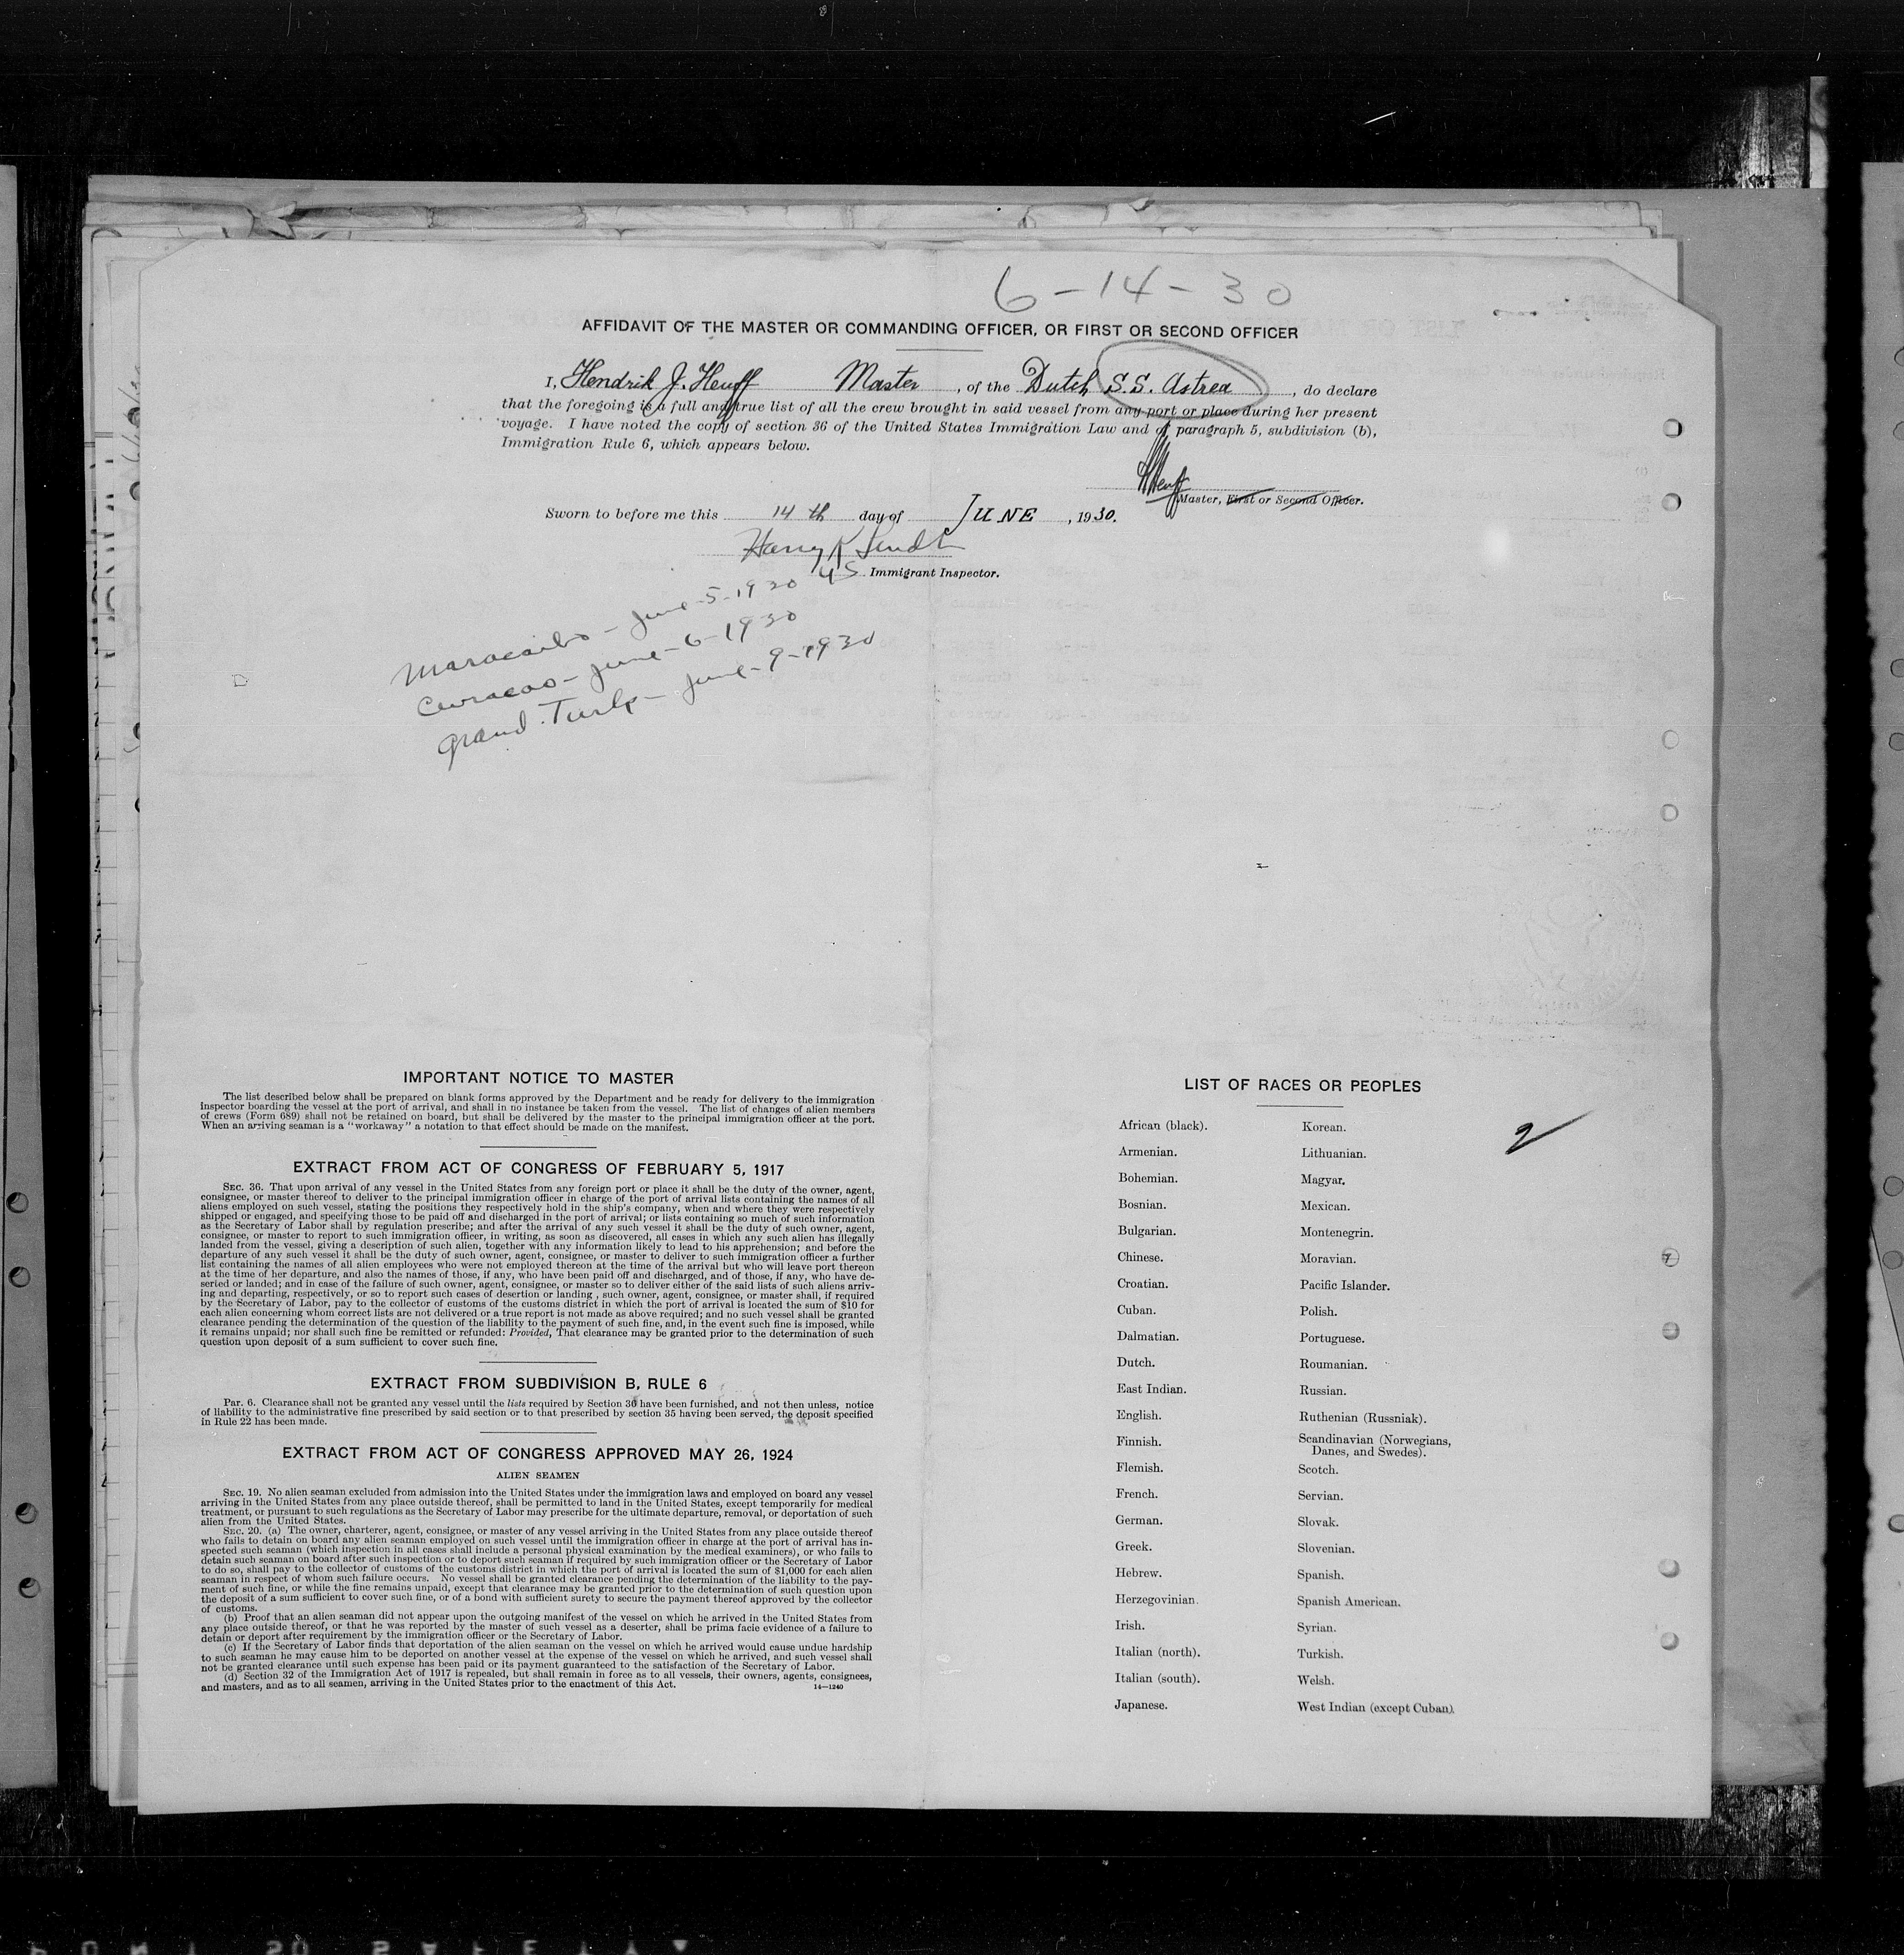 6-14-30
AFFIDAVIT OF THE MASTER OR COMMANDING OFFICER, OR FIRST OR SECOND OFFICER
I, Hendrik J. Heuff Master, of the Dutch S.S. Astrea, do declare
that the foregoing is a full and true list of all the crew brought in said vessel from any port or place during her present
voyage. I have noted the copy of section 36 of the United States Immigration Law and of paragraph 5, subdivision (b),
Immigration Rule 6, which appears below.
HHeuff
Master, First or Second Officer.
Sworn to before me this 14th day of JUNE, 1930.
Harry K
US Immigrant Inspector.
Maracaibo - June-5-1930
Curacao - June-6-1930
Grand Turk - June-9-1930
IMPORTANT NOTICE TO MASTER
The list described below shall be prepared on blank forms approved by the Department and be ready for delivery to the immigration
inspector boarding the vessel at the port of arrival, and shall in no instance be taken from the vessel. The list of changes of alien members
of crews (Form 689) shall not be retained on board, but shall be delivered by the master to the principal immigration officer at the port.
When an arriving seaman is a "workaway" a notation to that effect should be made on the manifest.
EXTRACT FROM ACT OF CONGRESS OF FEBRUARY 5, 1917
SEC. 36. That upon arrival of any vessel in the United States from any foreign port or place it shall be the duty of the owner, agent,
consignee, or master thereof to deliver to the principal immigration officer in charge of the port of arrival lists containing the names of all
aliens employed on such vessel, stating the positions they respectively hold in the ship's company, when and where they were respectively
shipped or engaged, and specifying those to be paid off and discharged in the port of arrival; or lists containing so much of such information
as the Secretary of Labor shall by regulation prescribe; and after the arrival of any such vessel it shall be the duty of such owner, agent,
consignee, or master to report to such immigration officer, in writing, as soon as discovered, all cases in which any such alien has illegally
landed from the vessel, giving a description of such alien, together with any information likely to lead to his apprehension; and before the
departure of any such vessel it shall be the duty of such owner, agent, consignee, or master to deliver to such immigration officer a further
list containing the names of all alien employees who were not employed thereon at the time of the arrival but who will leave port thereon
at the time of her departure, and also the names of those, if any, who have been paid off and discharged, and of those, if any, who have de-
serted or landed; and in case of the failure of such owner, agent, consignee, or master so to deliver either of the said lists of such aliens arriv-
ing and departing, respectively, or so to report such cases of desertion or landing, such owner, agent, consignee, or master shall, if required
by the Secretary of Labor, pay to the collector of customs of the customs district in which the port of arrival is located the sum of $10 for
each alien concerning whom correct lists are not delivered or a true report is not made as above required; and no such vessel shall be granted
clearance pending the determination of the question of the liability to the payment of such fine, and, in the event such fine is imposed, while
it remains unpaid; nor shall such fine be remitted or refunded: Provided, That clearance may be granted prior to the determination of such
question upon deposit of a sum sufficient to cover such fine.
EXTRACT FROM SUBDIVISION B, RULE 6
Par. 6. Clearance shall not be granted any vessel until the lists required by Section 36 have been furnished, and not then unless, notice
of liability to the administrative fine prescribed by said section or to that prescribed by section 35 having been served, the deposit specified
in Rule 22 has been made.
EXTRACT FROM ACT OF CONGRESS APPROVED MAY 26, 1924
ALIEN SEAMEN
SEC. 19. No alien seaman excluded from admission into the United States under the immigration laws and employed on board any vessel
arriving in the United States from any place outside thereof, shall be permitted to land in the United States, except temporarily for medical
treatment, or pursuant to such regulations as the Secretary of Labor may prescribe for the ultimate departure, removal, or deportation of such
alien from the United States.
SEC. 20. (a) The owner, charterer, agent, consignee, or master of any vessel arriving in the United States from any place outside thereof
who fails to detain on board any alien seaman employed on such vessel until the immigration officer in charge at the port of arrival has in-
spected such seaman (which inspection in all cases shall include a personal physical examination by the medical examiners), or who fails to
detain such seaman on board after such inspection or to deport such seaman if required by such immigration officer or the Secretary of Labor
to do so, shall pay to the collector of customs of the customs district in which the port of arrival is located the sum of $1,000 for each alien
seaman in respect of whom such failure occurs. No vessel shall be granted clearance pending the determination of the liability to the pay-
ment of such fine, or while the fine remains unpaid, except that clearance may be granted prior to the determination of such question upon
the deposit of a sum sufficient to cover such fine, or of a bond with sufficient surety to secure the payment thereof approved by the collector
of customs.
(b) Proof that an alien seaman did not appear upon the outgoing manifest of the vessel on which he arrived in the United States from
any place outside thereof, or that he was reported by the master of such vessel as a deserter, shall be prima facie evidence of a failure to
detain or deport after requirement by the immigration officer or the Secretary of Labor.
(c) If the Secretary of Labor finds that deportation of the alien seaman on the vessel on which he arrived would cause undue hardship
to such seaman he may cause him to be deported on another vessel at the expense of the vessel on which he arrived, and such vessel shall
not be granted clearance until such expense has been paid or its payment guaranteed to the satisfaction of the Secretary of Labor.
(d) Section 32 of the Immigration Act of 1917 is repealed, but shall remain in force as to all vessels, their owners, agents, consignees,
and masters, and as to all seamen, arriving in the United States prior to the enactment of this Act.
14—1240
LIST OF RACES OR PEOPLES
African (black).
Armenian.
Bohemian.
Bosnian.
Bulgarian.
Chinese.
Croatian.
Cuban.
Dalmatian.
Dutch.
East Indian.
English.
Finnish.
Flemish.
French.
German.
Greek.
Hebrew.
Herzegovinian.
Irish.
Italian (north).
Italian (south).
Japanese.
Korean.
Lithuanian.
Magyar.
Mexican.
Montenegrin.
Moravian.
Pacific Islander.
Polish.
Portuguese.
Roumanian.
Russian.
Ruthenian (Russniak).
Scandinavian (Norwegians,
Danes, and Swedes).
Scotch.
Servian.
Slovak.
Slovenian.
Spanish.
Spanish American.
Syrian.
Turkish.
Welsh.
West Indian (except Cuban).
2